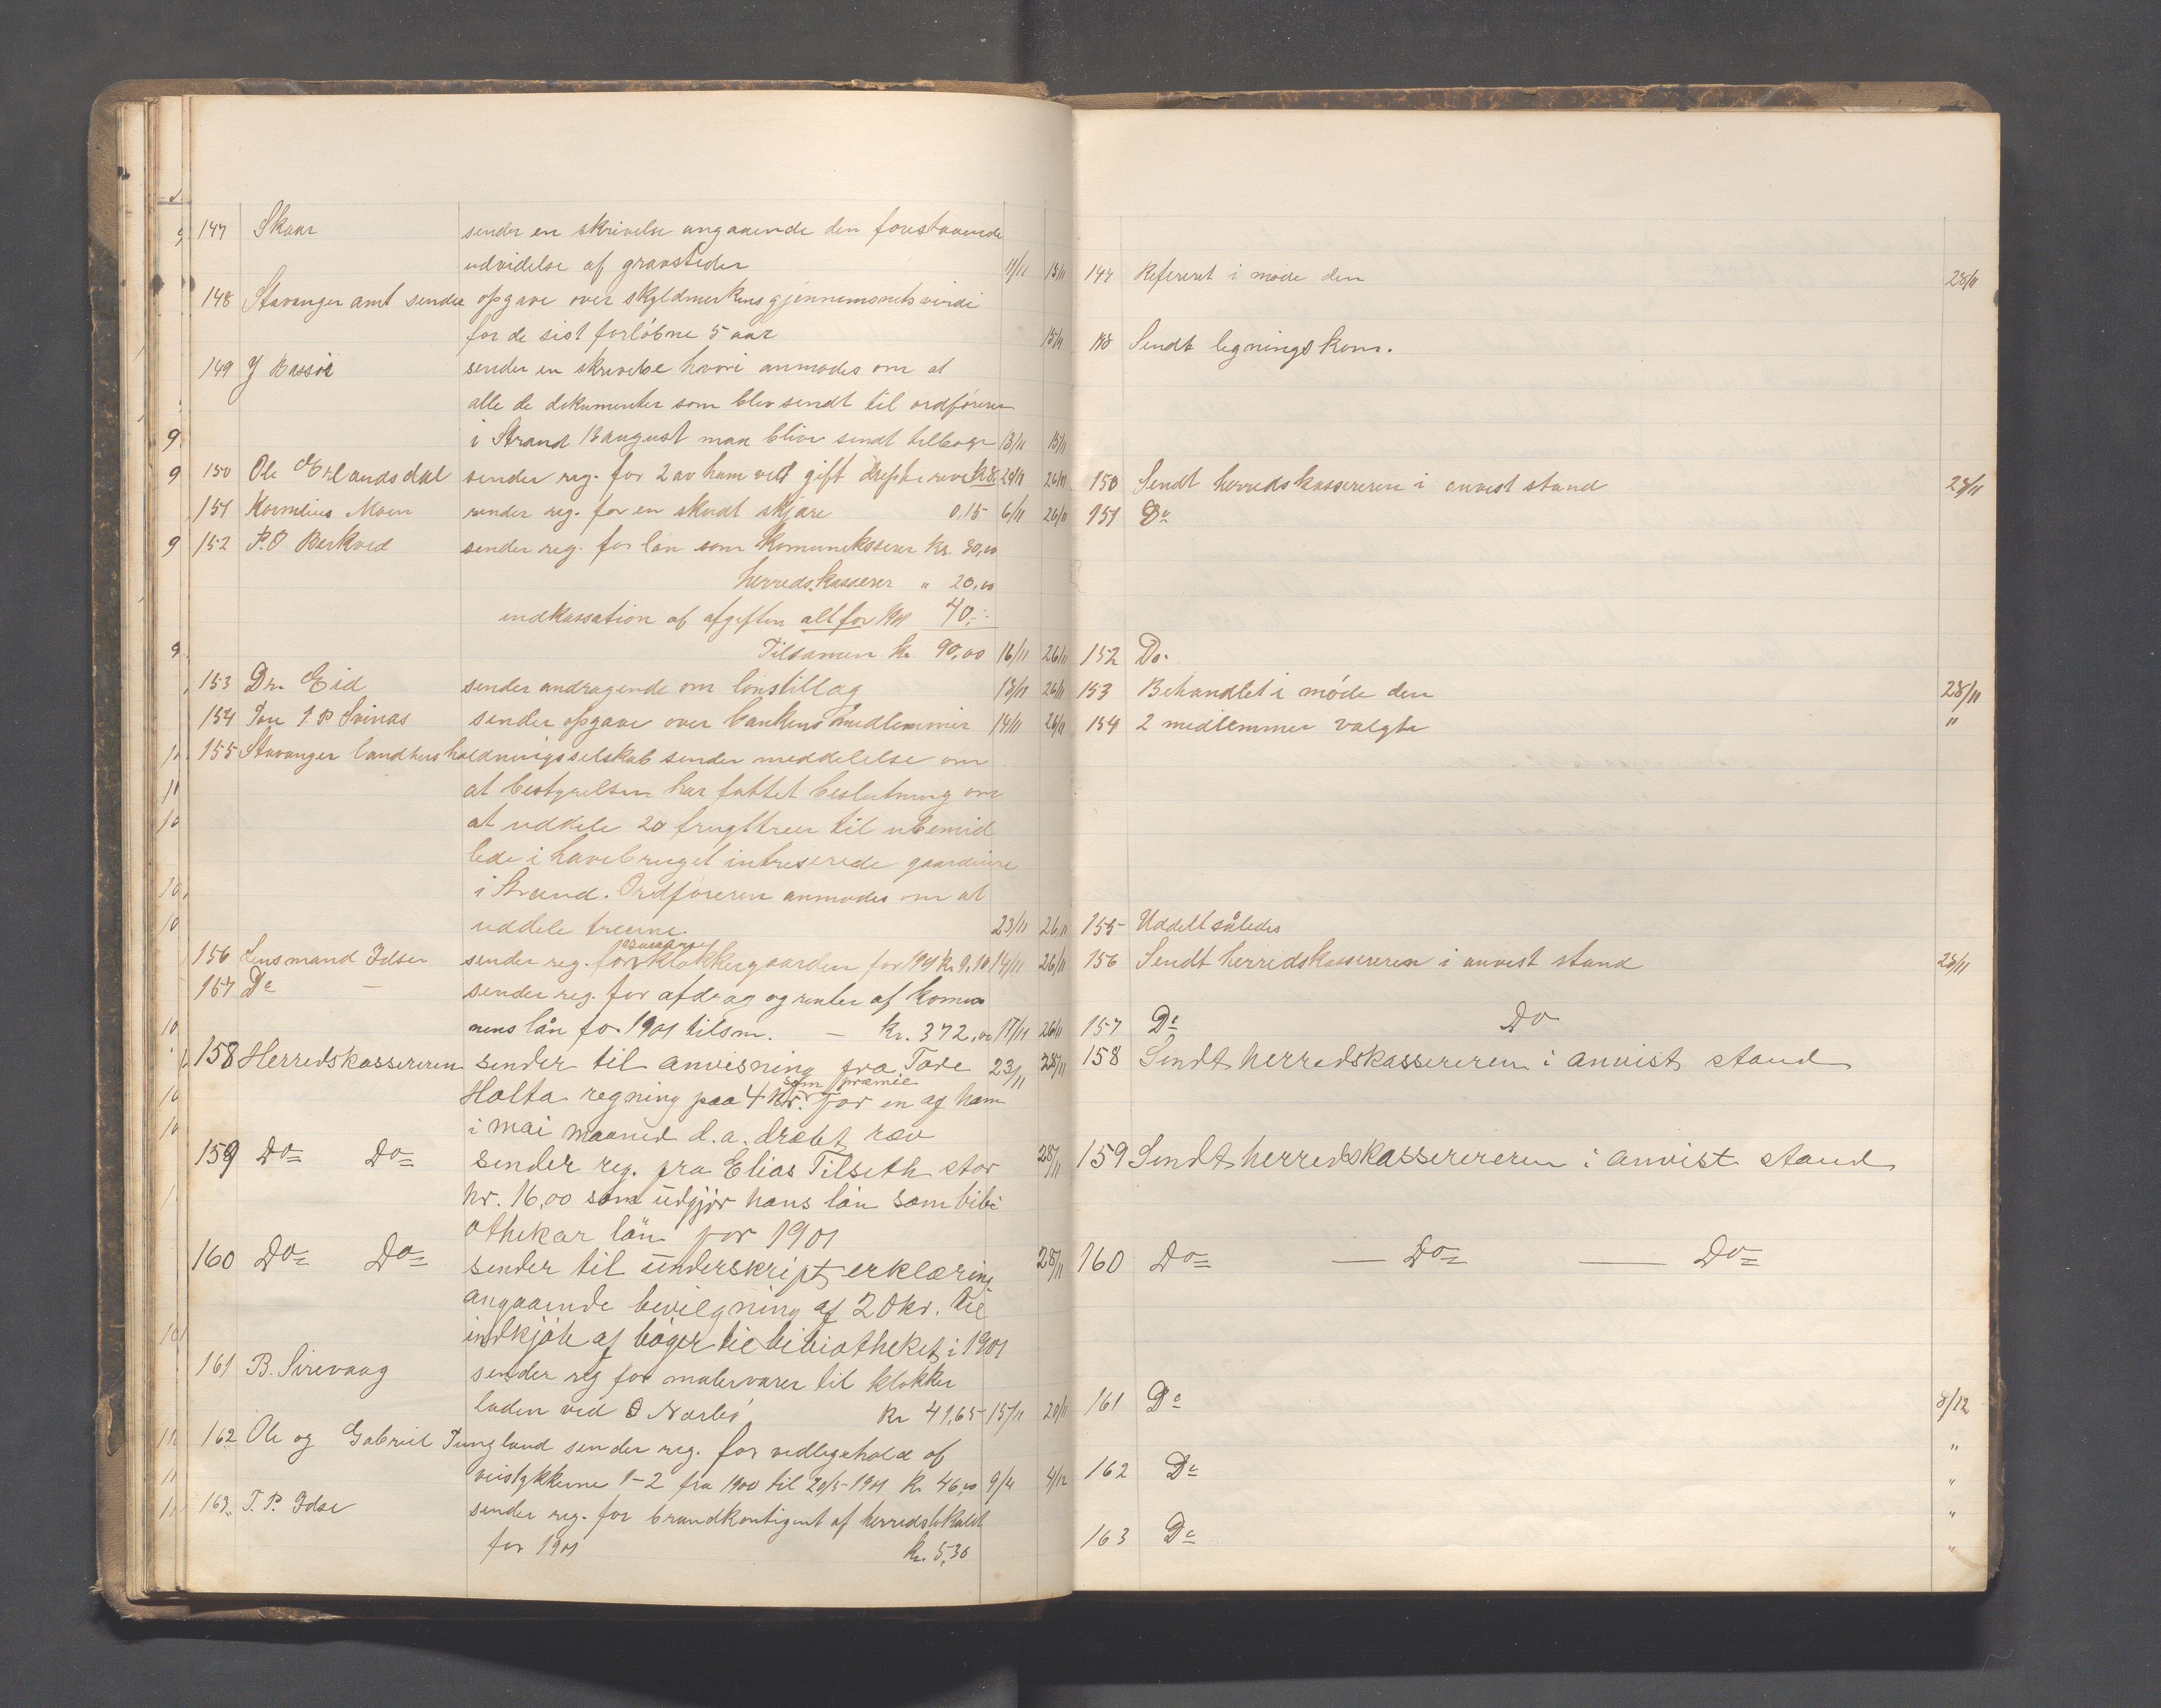 147 Skaar sender en skrivelse angaaende den forestaaende
udvidelse af gravsteder 11/11 13/11
148 Stavanger amt sender opgave over skyldmarkens gjennemsnitsværdi
for de sist forløbne 5 aar 15/11
149 J Bassøe sender en skrivelse hvori anmodes om at
alle de dokumenter som blev sendt til ordføreren
i Strand 13 august maa blive sendt tilbage 13/11 15/11
150 Ole Erlandsdal sender reg. for 2 av ham ved gift dræpte ræve kr 8. 20/11 26/11
151 Kornelius Moen sender reg. for en skudt skjære 0,15 6/11 26/11
152 P.O Barkved sender reg. for løn som komunekasserer kr. 30,00
herredskasserer " 20,00
indkassation af afgiften alt for 1901 40,-
Tilsamen kr 90,00 16/11 26/11
153 Dr. Eid sender andragende om lønstillæg 13/11 26/11
154 Jon I. P Svinås sender opgave over bankens medlemmer 14/11 26/11
155 Stavanger landhusholdningsselskab sender meddelelse om
at bestyrelsen har fattet beslutning om
at uddele 20 frugttreer til ubemid
lede i havebruget intreserede gaardeiere
i Strand. Ordføreren anmodes om at
uddele treerne. 23/11 26/11
156 Lensmand Idsøe sender reg. for assurance klokkergaarden for 1901 kr 9,10 14/11 26/11
157 Do — sender reg. for afdrag og renter af komu
nens lån for 1901 tilsm. — kr. 372,00 17/11 26/11
158 Herredskassereren sender til anvisning fra Tore 23/11 28/11
Holta regning paa 4 kr. som præmie for en af ham
i mai maaned d.a. dræbt ræv
159 Do= Do= sender reg. fra Elias Tilseth stor 28/11
kr. 16,00 som udgjør hans løn som bibi
othekar løn for 1901
160 Do= Do= sender til underskript erklæring 28/11
angaaende bevilgning af 20 kr. til
indkjøb af bøger til bibiotheket i 1901
161 B. Sirevaag sender reg for malervarer til klokker
laden ved O Nærbø kr 41,65 15/11 20/11
162 Ole og Gabriel Tungland sender reg. for vedligehold af
veistykkerne 1-2 fra 1900 til 20/5-1901 kr 46,00 9/4 4/12
163. T. P. Idsø sender reg. for brandkontigent af herredslokalet
for 1901 kr. 5,30
147 Refereret i møde den 28/11
148 Sendt ligningskom.
150 Sendt herredskassereren i anvist stand 28/11
151 Do
152 Do.
153 Behandlet i møde den 28/11
154 2 medlemmer valgte "
155 Uddelt således
156 Sendt herredskassereren i anvist stand 28/11
157 Do Do
158 Sendt herredskassereren i anvist stand
159 Sendt herredskasserereren i anvist stand
160 Do= — Do= — Do=
161 Do 8/12
"
162 Do "
"
163 Do "